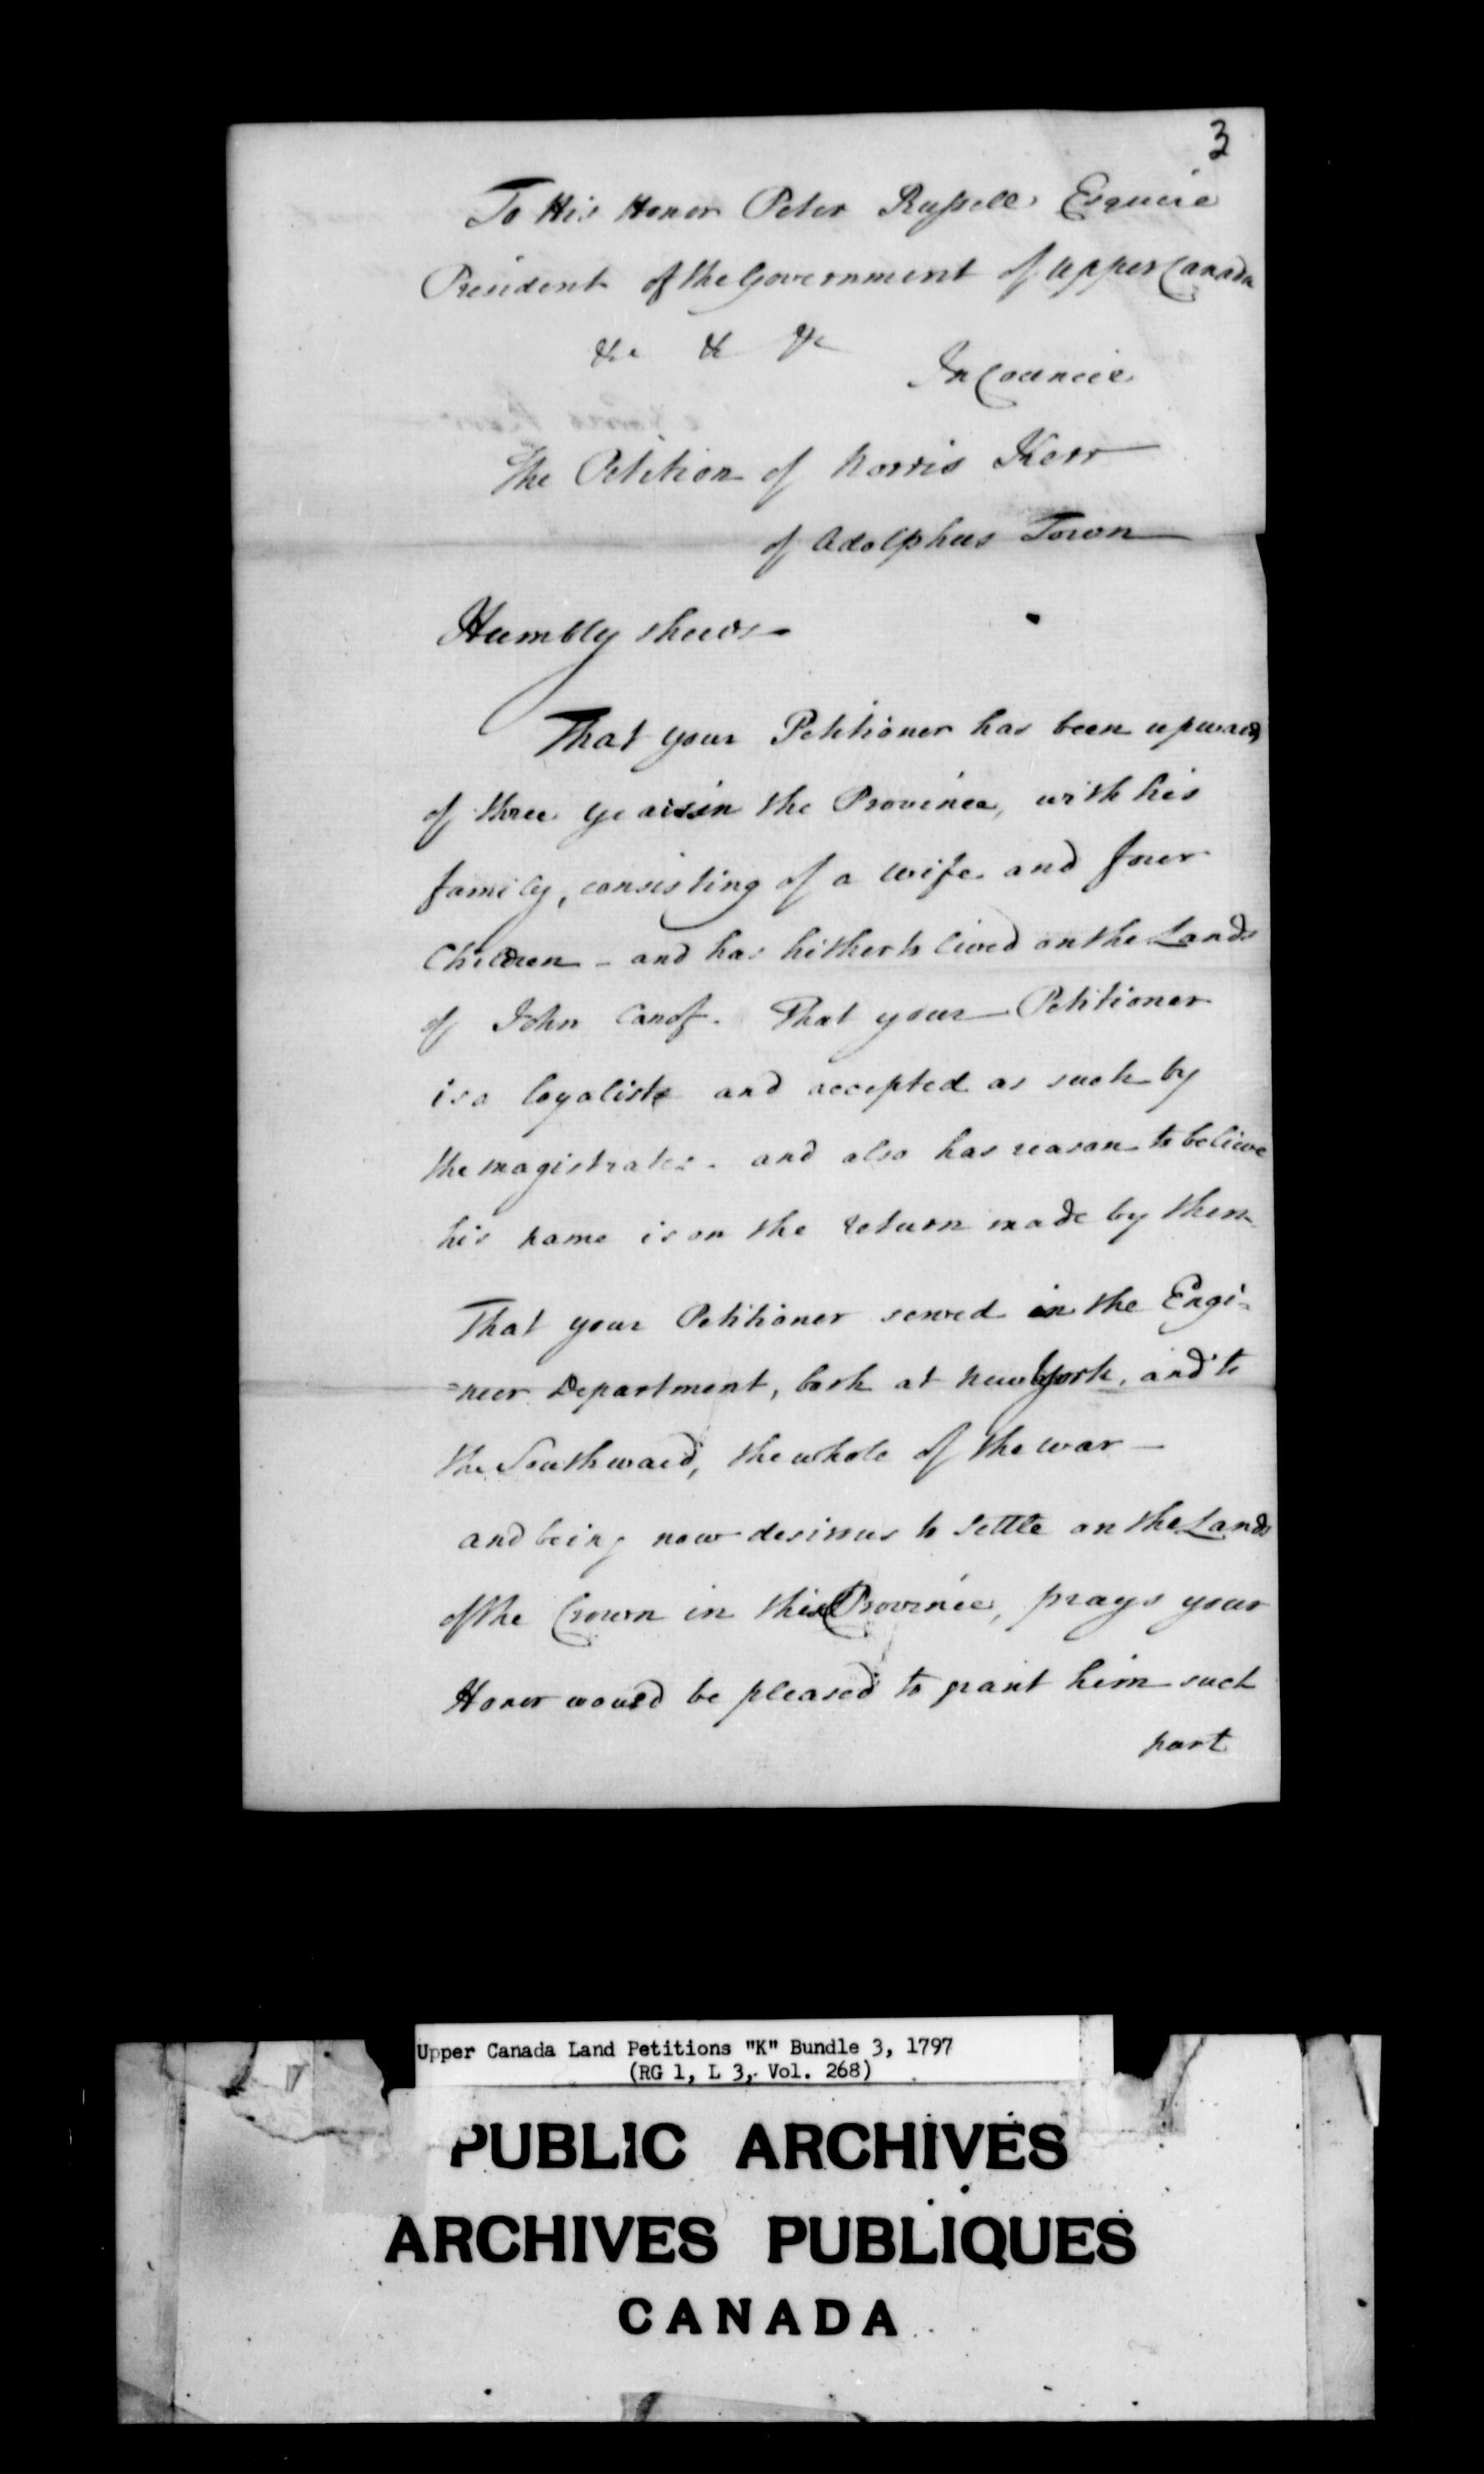 3
To His Honor Peter Russell Esquire
President of the Government of Upper Canada
&c &c &c
In Council
The Petition of Norris Kerr
of Adolphus Town
Humbly shews
That your Petitioner has been upwards
of three years in the Province, with his
family, consisting of a wife and four
Children - and has hitherto lived on the Lands
of John Canof. That your Petitioner
is a loyalist and accepted as such by
the magistrates. and also has reason to believe
his name is on the return made by them
That your Petitioner served in the Engi=
=neer Department, both at New York, and to
the Southward, the whole of the war —
and being now desirous to settle on the Lands
of the Crown in this Province, prays your
Honor would be pleased to grant him such
part
Upper Canada Land Petitions "K" Bundle 3, 1797
(RG 1, L 3, Vol. 268)
PUBLIC ARCHIVES
ARCHIVES PUBLIQUES
CANADA